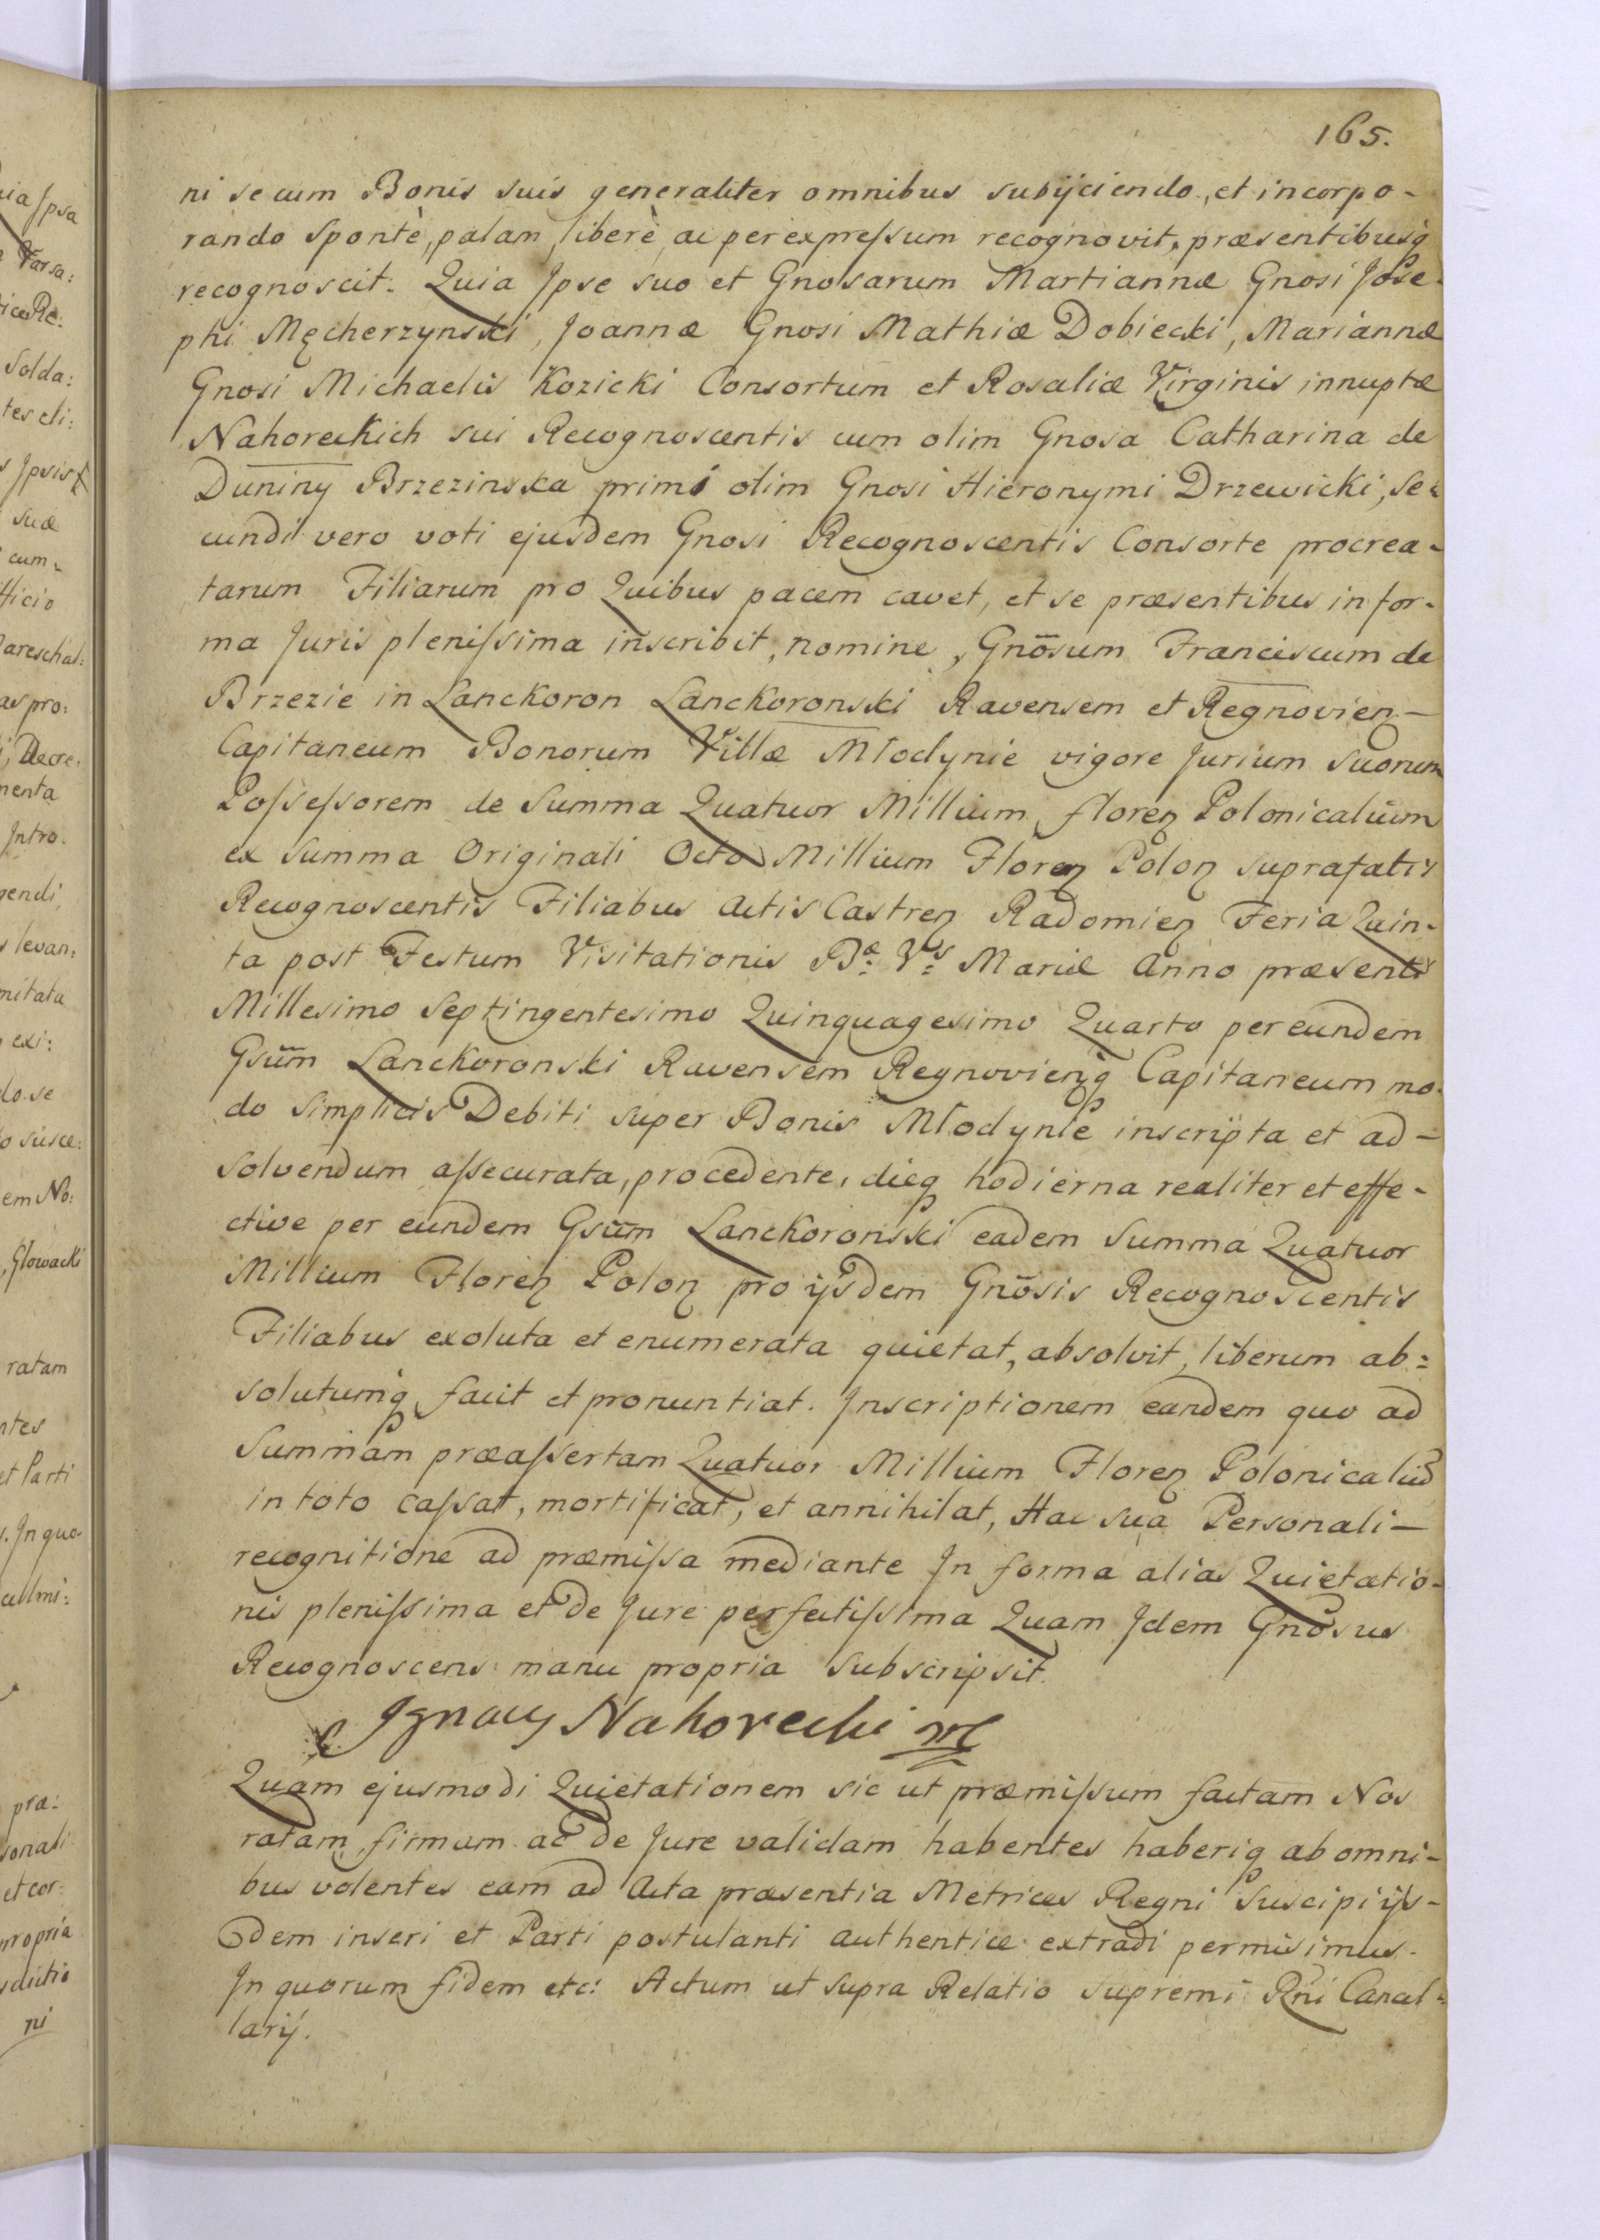 165.
ni se cum Bonis suis generaliter omnibus subijciendo, et incorpo-
rando Spontè, palam, liberè, ac per expreſsum recognovit, præsentibusq
recognoscit. Quia Ipse suo et Gnosarum Martiannæ Gnosi Jose-
phi Męcherzynski, Joannæ Gnosi Mathiæ Dobiecki, Mariannæ
Gnosi Michaelis Kozicki Consortum et Rosaliæ Virginis innuptæ
Nahoreckich sui Recognoscentis cum olim Gnosa Catharina de
Duniny Brzezinska primi olim Gnosi Hieronymi Drzewicki, se-
cundi vero voti ejusdem Gnosi Recognoscentis Consorte procrea-
tarum Filiarum pro Quibus pacem cavet, et se præsentibus in for-
ma Juris pleniſsima inscribit, nomine, Gnōsum Franciscum de
Brzezie in Lanckoron Lanckoronski Ravensem et Regnovien̄ -
Capitaneum Bonorum Villæ Młodynie vigore Jurium Suorum
Poſseſsorem de Summa Quatuor Millium floren̄ Polonicalium
ex Summa Originali Octo Millium Floren̄ Polon̄ suprafatis
Recognoscentis Filiabus Actis Castren̄ Radomien̄ Feria Quin-
ta post Festum Visitationis Bæ: Vs: Mariæ Anno præsenti
Millesimo Septingentesimo Quinquagesimo Quarto per eundem
Gsūm Lanckoronski Ravensem Regnovien̄q Capitaneum mo-
do Simplicis Debiti super Bonis Młodynie inscripta et ad-
solvendum aſsecurata, procedente, dieq hodierna realiter et effe-
ctive per eundem Gsūm Lanckoronski eadem Summa Quatuor
Millium Floren̄ Polon̄ pro ijsdem Gnōsis Recognoscentis
Filiabus exoluta et enumerata quietat, absolvit, liberum ab=
solutumq facit et pronuntiat. Inscriptionem eandem quo ad
Summam præaſsertam Quatuor Millium Floren̄ Polonicaliū
in toto caſsat, mortificat, et annihilat, Hac sua Personali-
recognitione ad præmiſsa mediante In forma alias Quietatio-
nis pleniſsima et de Jure perfectiſsima Quam Idem Gnōsus
Recognoscens manu propria subscripsit.
Ignacy Nahorecki mp
Quam ejusmodi Quietationem sic ut præmiſsum factam Nos
ratam, firmam ac de Jure validam habentes haberiq ab omni-
bus volentes eam ad Acta præsentia Metrices Regni Suscipi ijs-
dem inseri et Parti postulanti authentice extradi permisimus.
In quorum fidem etc: Actum ut supra Relatio Supremi Rni Cancel-
larij.